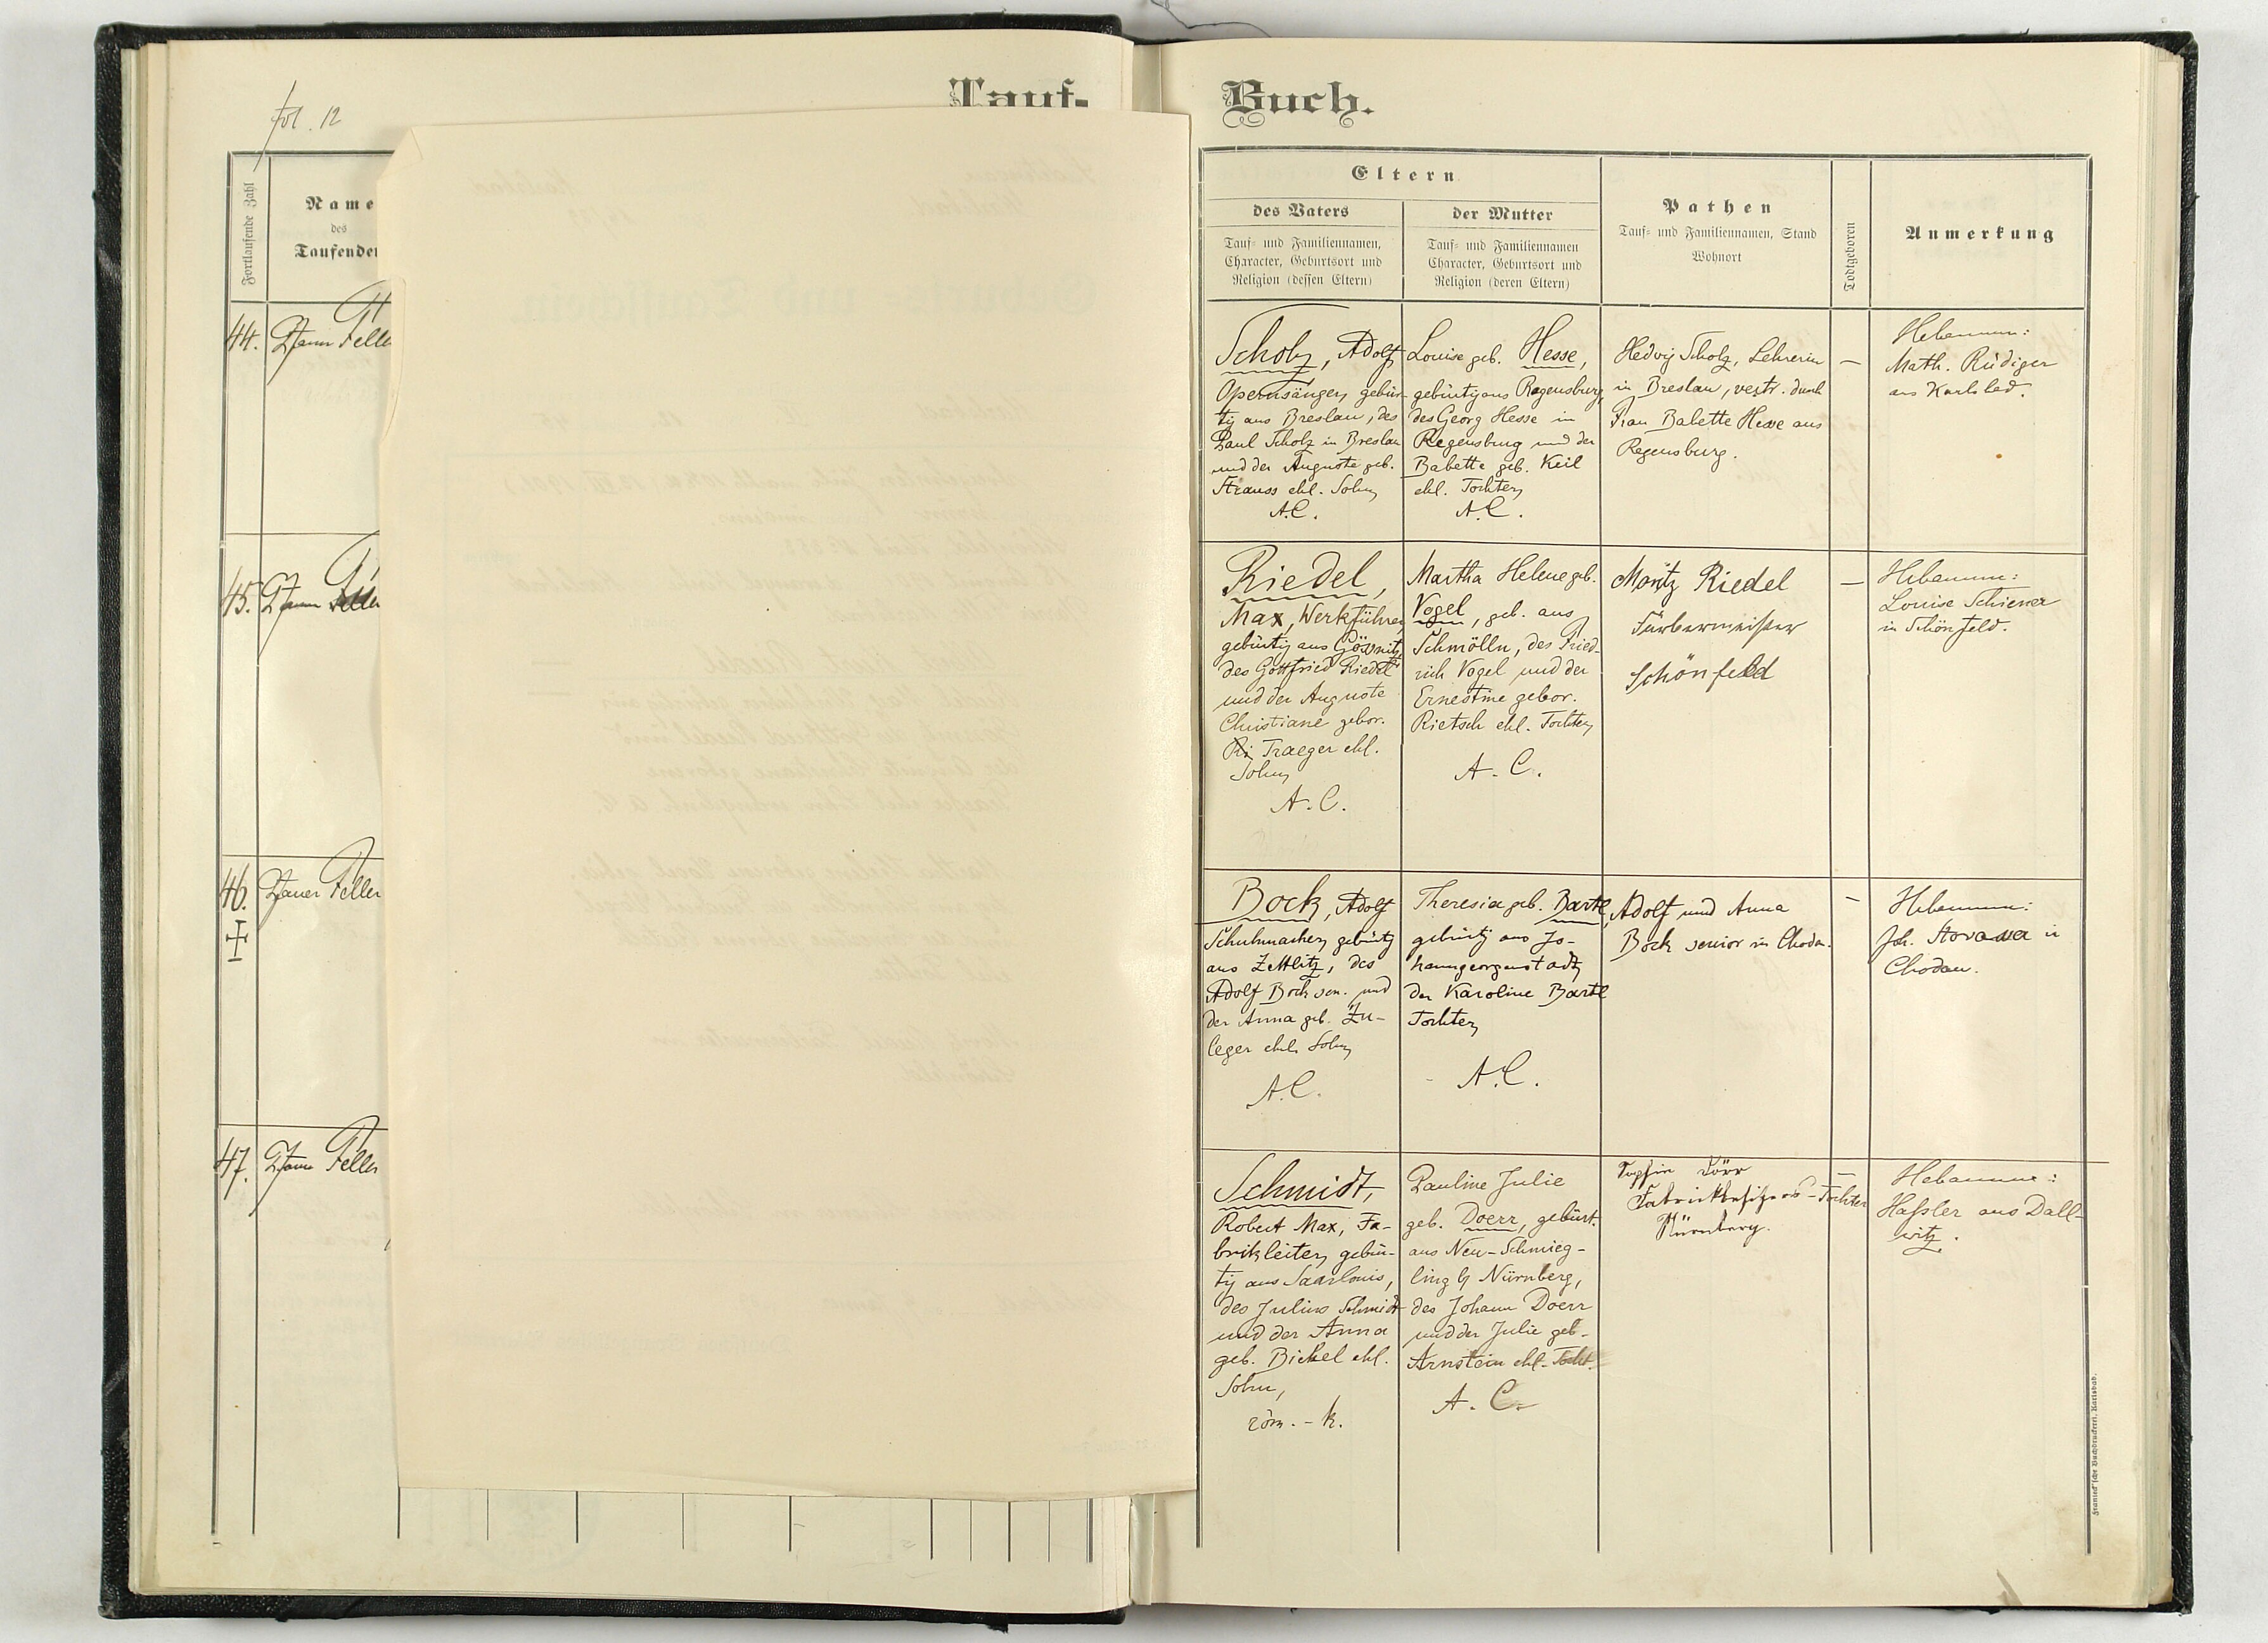 fol. 12
Tauf-
Buch.
Fortlaufende Zahl
Name
des
Taufenden
Eltern
des Vaters
Tauf- und Familiennamen,
Character, Geburtsort und
Religion (dessen Eltern)
der Mutter
Tauf- und Familiennamen
Character, Geburtsort und
Religion (deren Eltern)
Pathen
Tauf- und Familiennamen, Stand
Wohnort
Todtgeboren
Anmerkung
44.
Scholz, Adolf,
Opernsänger, gebür-
tig aus Breslau, des
Paul Scholz in Breslau
und der Auguste geb.
Strauss ehl. Sohn,
A.C.
Louise geb. Hesse,
gebürtig aus Regensburg,
des Georg Hesse in
Regensburg und der
Babette geb. Keil
ehl. Tochter,
A.C.
Hedwig Scholz, Lehrerin
in Breslau, vertr. durch
Frau Babette Hesse aus
Regensburg.
—
Hebamme:
Math. Rüdiger
aus Karlsbad.
45.
Riedel,
Max, Werkführer,
gebürtig aus Gössnitz,
des Gottfried Riedel
und der Auguste
Christiane gebor.
Ri Traeger ehl.
Sohn,
A.C.
Martha Helene geb.
Vogel, geb. aus
Schmölln, des Fried-
rich Vogel und der
Ernestine gebor.
Rietsch ehl. Tochter,
A.C.
Moritz Riedel
Färbermeister
Schönfeld
—
Hebamme:
Louise Schiener
in Schönfeld.
46.
Feller
Bock, Adolf
Schuhmacher, gebürtig
aus Zettlitz, des
Adolf Bock sen. und
der Anna geb. Zu-
leger ehl. Sohn,
A.C.
Theresia geb. Bartl,
gebürtig aus Jo-
hanngeorgenstadt,
der Karoline Bartl
Tochter,
A.C.
Adolf und Anna
Bock senior in Chodau.
—
Hebamme:
Joh. in
Chodau.
47.
Feller
Schmidt,
Robert Max, Fa-
briksleiter, gebür-
tig aus Saarlouis,
des Julius Schmidt
und der Anna
geb. Bickel ehl.
Sohn,
röm.-k.
Pauline Julie
geb. Doerr, gebürt.
aus Neu-Schnieg-
ling b/ Nürnberg,
des Johann Doerr
und der Julie geb.
Arnstein ehl. Tocht.
A.C.
Dörr
Fabrickbesitzers-Tochter
Nürnberg.
—
Hebamme:
Haßler aus Dall-
witz.
Franieck'sche Buchdruckerei, Karlsbad.